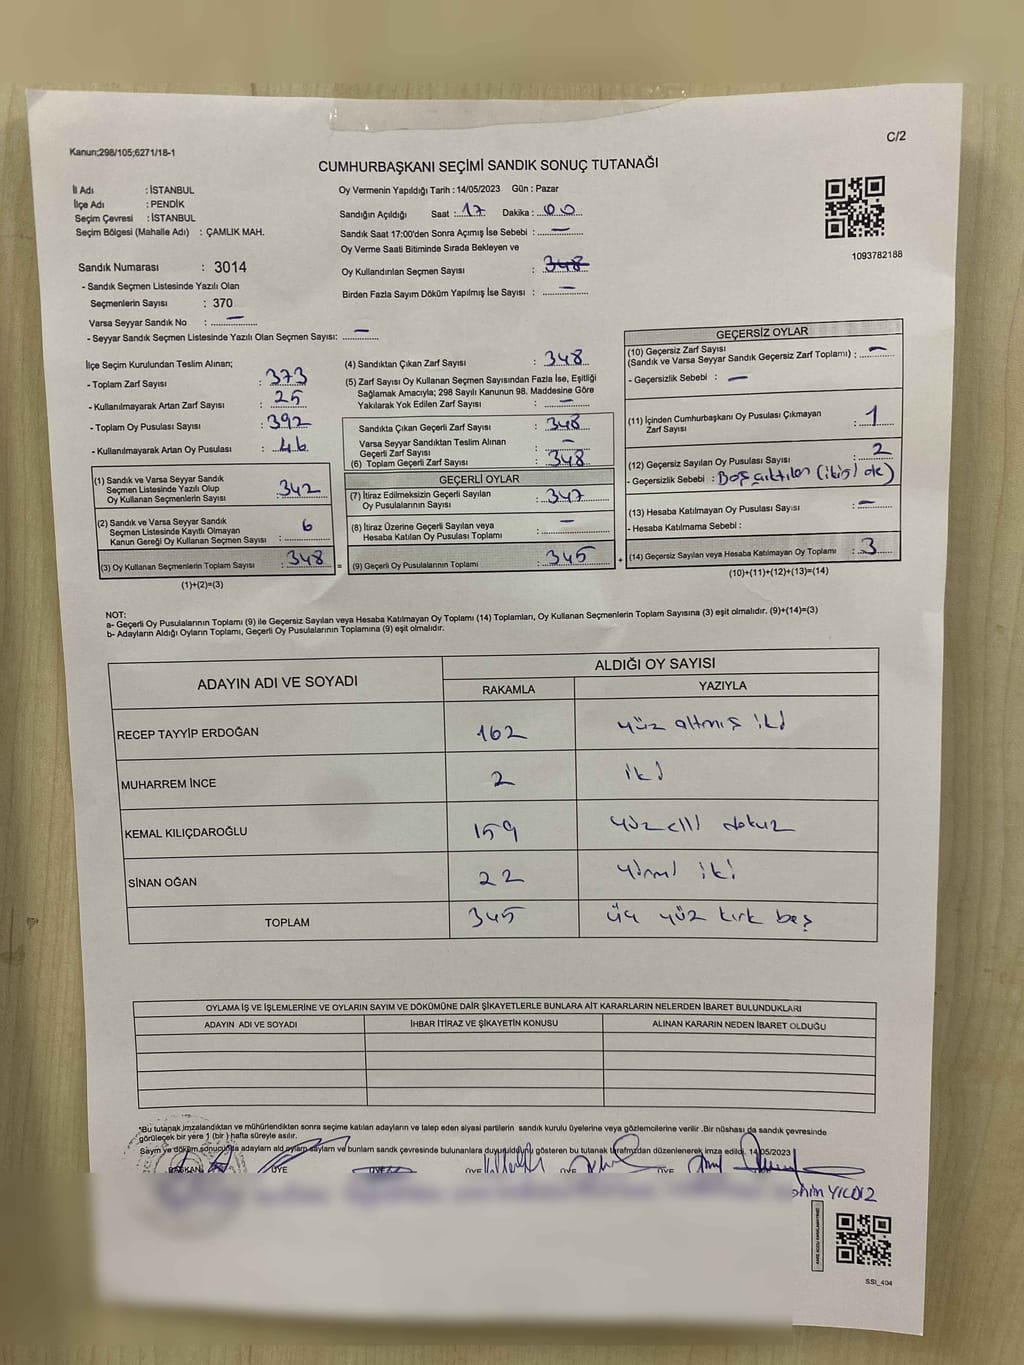 C/2
Kanun;298/105;6271/18-1
CUMHURBAŞKANI SEÇİMİ SANDIK SONUÇ TUTANAĞI
İl Adı : İSTANBUL
İlçe Adı : PENDİK
Seçim Çevresi : İSTANBUL
Seçim Bölgesi (Mahalle Adı) : ÇAMLIK MAH.
Oy Vermenin Yapıldığı Tarih : 14/05/2023 Gün : Pazar
Sandığın Açıldığı Saat : 17 Dakika : 00
Sandık Saat 17:00'den Sonra Açımış İse Sebebi : —
Oy Verme Saati Bitiminde Sırada Bekleyen ve
Oy Kullandırılan Seçmen Sayısı : 348
Birden Fazla Sayım Döküm Yapılmış İse Sayısı : —
1093782188
Sandık Numarası : 3014
- Sandık Seçmen Listesinde Yazılı Olan
Seçmenlerin Sayısı : 370
Varsa Seyyar Sandık No : —
- Seyyar Sandık Seçmen Listesinde Yazılı Olan Seçmen Sayısı: —
İlçe Seçim Kurulundan Teslim Alınan;
- Toplam Zarf Sayısı : 373
- Kullanılmayarak Artan Zarf Sayısı : 25
- Toplam Oy Pusulası Sayısı : 392
- Kullanılmayarak Artan Oy Pusulası : 46
(1) Sandık ve Varsa Seyyar Sandık
Seçmen Listesinde Yazılı Olup
Oy Kullanan Seçmenlerin Sayısı : 342
(2) Sandık ve Varsa Seyyar Sandık
Seçmen Listesinde Kayıtlı Olmayan
Kanun Gereği Oy Kullanan Seçmen Sayısı : 6
(3) Oy Kullanan Seçmenlerin Toplam Sayısı : 348
(1)+(2)=(3)
(4) Sandıktan Çıkan Zarf Sayısı : 348
(5) Zarf Sayısı Oy Kullanan Seçmen Sayısından Fazla İse, Eşitliği
Sağlamak Amacıyla; 298 Sayılı Kanunun 98. Maddesine Göre
Yakılarak Yok Edilen Zarf Sayısı : —
Sandıkta Çıkan Geçerli Zarf Sayısı : 348
Varsa Seyyar Sandıktan Teslim Alınan
Geçerli Zarf Sayısı : —
(6) Toplam Geçerli Zarf Sayısı : 348
GEÇERLİ OYLAR
(7) İtiraz Edilmeksizin Geçerli Sayılan
Oy Pusulalarının Sayısı : 347
(8) İtiraz Üzerine Geçerli Sayılan veya
Hesaba Katılan Oy Pusulası Toplamı : —
= (9) Geçerli Oy Pusulalarının Toplamı : 345 +
GEÇERSİZ OYLAR
(10) Geçersiz Zarf Sayısı
(Sandık ve Varsa Seyyar Sandık Geçersiz Zarf Toplamı) : —
- Geçersizlik Sebebi : —
(11) İçinden Cumhurbaşkanı Oy Pusulası Çıkmayan
Zarf Sayısı : 1
(12) Geçersiz Sayılan Oy Pusulası Sayısı : 2
- Geçersizlik Sebebi : Boş çıktılar (ikisi de)
(13) Hesaba Katılmayan Oy Pusulası Sayısı : —
- Hesaba Katılmama Sebebi :
(14) Geçersiz Sayılan veya Hesaba Katılmayan Oy Toplamı : 3
(10)+(11)+(12)+(13)=(14)
NOT:
a- Geçerli Oy Pusulalarının Toplamı (9) ile Geçersiz Sayılan veya Hesaba Katılmayan Oy Toplamı (14) Toplamları, Oy Kullanan Seçmenlerin Toplam Sayısına (3) eşit olmalıdır. (9)+(14)=(3)
b- Adayların Aldığı Oyların Toplamı, Geçerli Oy Pusulalarının Toplamına (9) eşit olmalıdır.
ADAYIN ADI VE SOYADI
ALDIĞI OY SAYISI
RAKAMLA YAZIYLA
RECEP TAYYİP ERDOĞAN 162 yüz altmış iki
MUHARREM İNCE 2 iki
KEMAL KILIÇDAROĞLU 159 yüz elli dokuz
SİNAN OĞAN 22 yirmi iki
TOPLAM 345 üç yüz kırk beş
OYLAMA İŞ VE İŞLEMLERİNE VE OYLARIN SAYIM VE DÖKÜMÜNE DAİR ŞİKAYETLERLE BUNLARA AİT KARARLARIN NELERDEN İBARET BULUNDUKLARI
ADAYIN ADI VE SOYADI İHBAR İTİRAZ VE ŞİKAYETİN KONUSU ALINAN KARARIN NEDEN İBARET OLDUĞU
"Bu tutanak imzalandıktan ve mühürlendikten sonra seçime katılan adayların ve talep eden siyasi partilerin sandık kurulu üyelerine veya gözlemcilerine verilir .Bir nüshası da sandık çevresinde
görülecek bir yere 1 (bir ) hafta süreyle asılır.
Sayım ve döküm sonucunda adayların ald oyların sayların ve bunların sandık çevresinde bulunanlara duyurulduğunu gösteren bu tutanak tarafımızdan düzenlenerek imza edildi. 14/05/2023
BAŞKAN ÜYE ÜYE ÜYE ÜYE ÜYE
YILDIZ
SSI_404